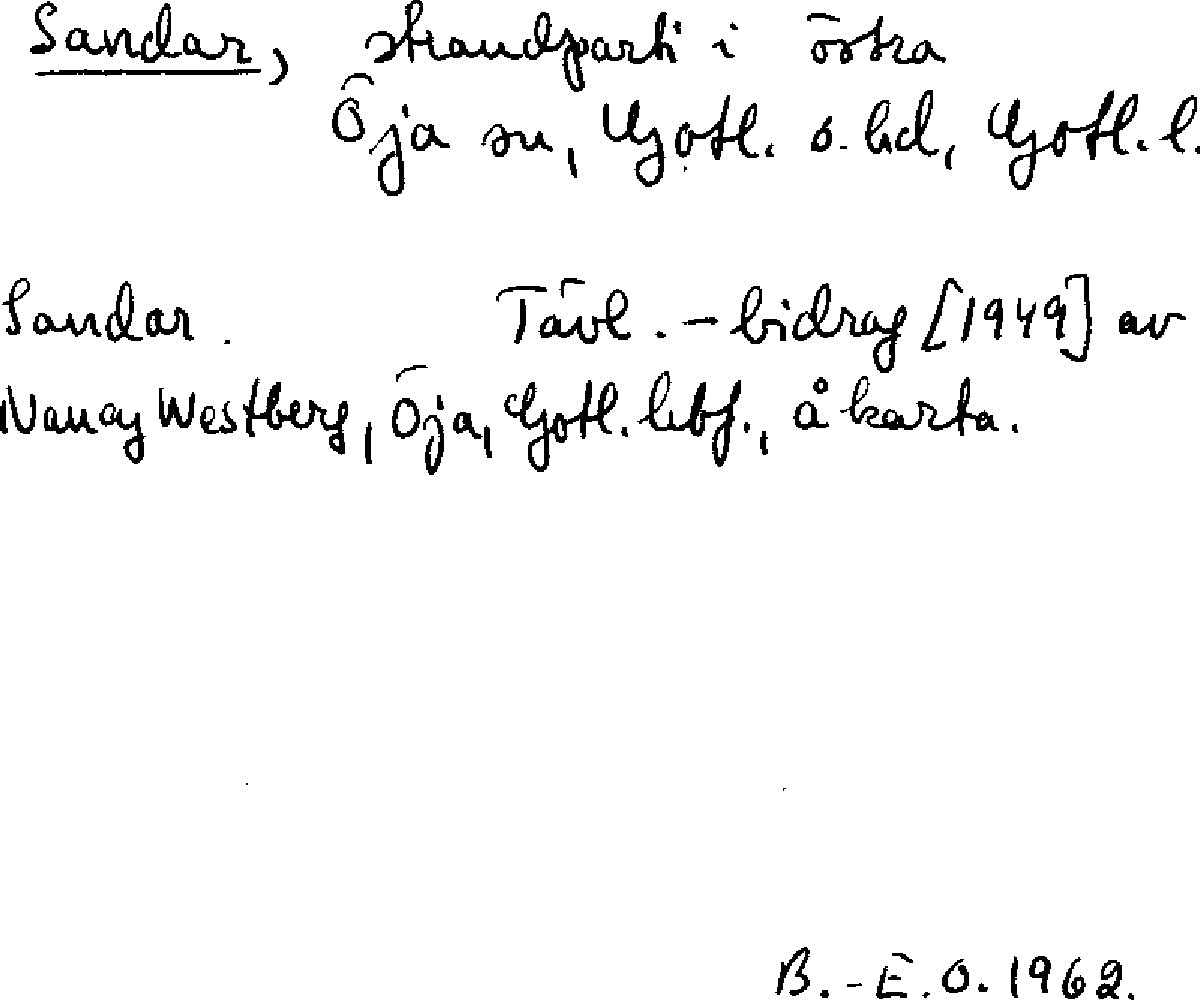 Sandar, strandparti i östra
Öja sn, Gotl. s. hd, Gotl. l.
Sandar. Tävl.-bidrag [1949] av
Nancy Westberg, Öja, Gotl. hbf., å karta.
B.-E.O. 1962.